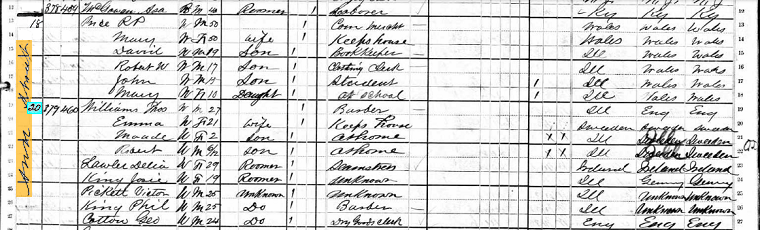 Ann Street
378 459 McGowan Asa B M 40 Roomer Laborer Ky Ky Ky
18 Price R P W M 50 Com Mercht Wales Wales Wales
Mary W F 50 Wife Keeps house Wales Wales Wales
David W M 19 Son Book Keeper Ill Wales Wales
Robert W W M 17 Son Clerk Ill Wales Wales
John W M Son Student Ill Wales Wales
Mary W F 10 Daught At School Ill Wales Wales
20 379 460 Williams Thos W M 27 Barber Ill Eng Eng
Emma W F 21 Wife Keeps house Sweeden Sweeden Sweeden
Maude W F 2 Son at home Ill Sweeden
Robert W M Son at home Ill Sweeden Sweeden
Lawler Delia W F 29 Roomer Seamstress Ireland Ireland Ireland
King Josie W F 19 Roomer Unknown Ill Germy Germy
Pickett Victor W M 35 Unknown Unknown Ill Unknown Unknown
King Phil W M 25 Do Barber Ill Unknown Unknown
Cotton Geo W M 24 Do Dry Goods Clerk Ill Eng Eng